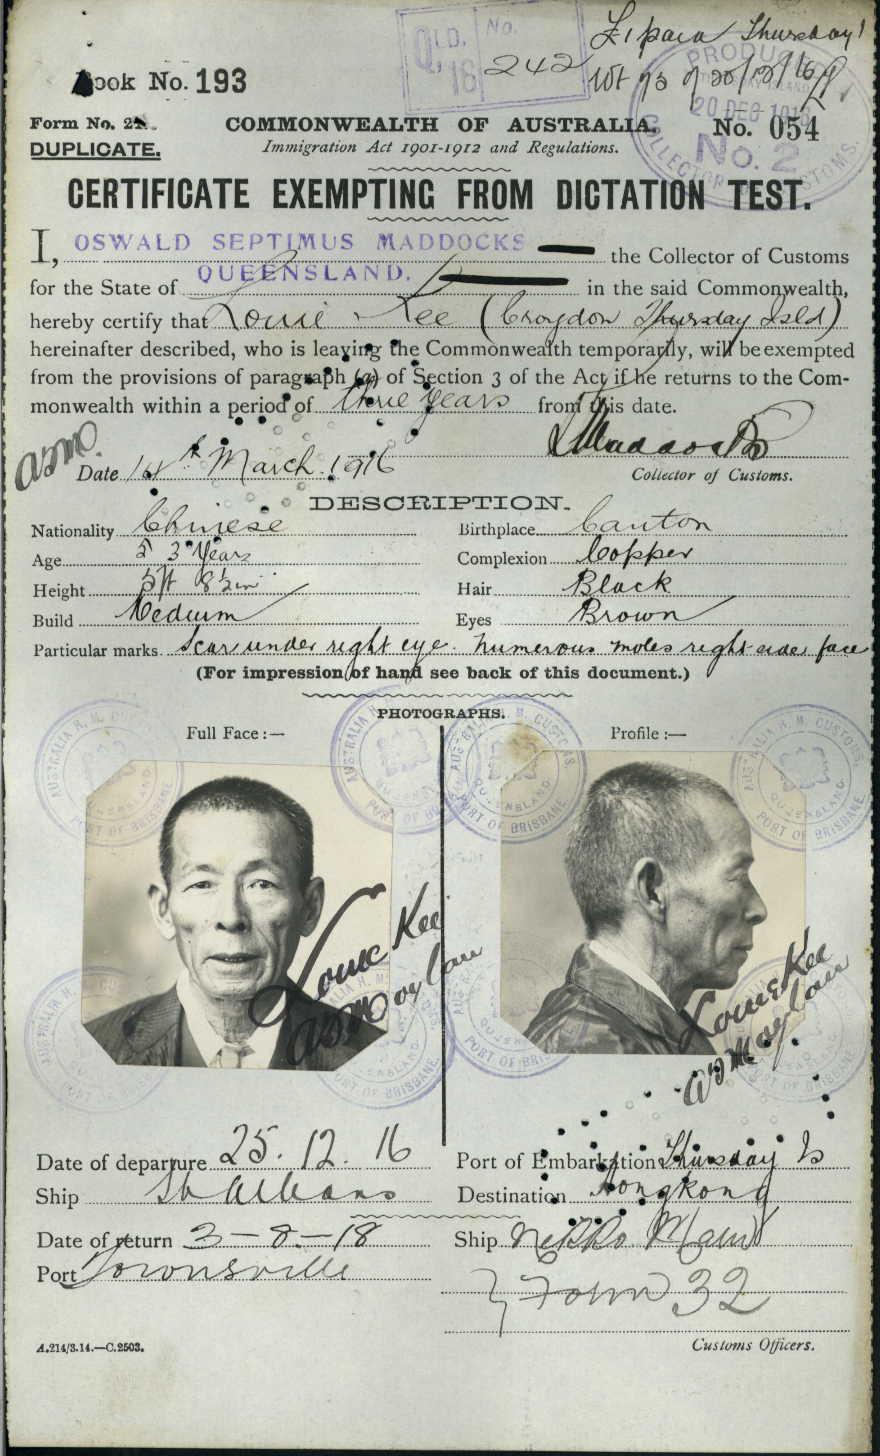 QLD. 16 No. 242
Thursday I
20/12/16
PRODUCED
20 DEC 1916
No. 2
COLLECTOR CUSTOMS.
Book No. 193
Form No. 21.
DUPLICATE.
COMMONWEALTH OF AUSTRALIA.
Immigration Act 1901-1912 and Regulations.
No. 054
CERTIFICATE EXEMPTING FROM DICTATION TEST.
I, OSWALD SEPTIMUS MADDOCKS the Collector of Customs
for the State of QUEENSLAND. in the said Commonwealth,
hereby certify that Louie Kee (Croydon Thursday Isld)
hereinafter described, who is leaving the Commonwealth temporarily, will be exempted
from the provisions of paragraph (a) of Section 3 of the Act if he returns to the Com-
monwealth within a period of three years from this date.
Maddocks
Date 14th March 1916
Collector of Customs.
DESCRIPTION.
Nationality Chinese Birthplace Canton
Age 53 Years Complexion Copper
Height 5ft 8½in Hair Black
Build Medium Eyes Brown
Particular marks. Scar under right eye. Numerous moles right side face
(For impression of hand see back of this document.)
PHOTOGRAPHS.
Full Face :— Profile :—
AUSTRALIA H. M. CUSTOMS.
QUEENSLAND.
PORT OF BRISBANE
Louie Kee
Louie Kee
Date of departure 25.12.16 Port of Embarkation Thursday Is
Ship St Albans Destination Hongkong
Date of return 3-8-18 Ship Nikko Maru
Port Townsville
Form 32
A.214/3.14.—C.2503.
Customs Officers.